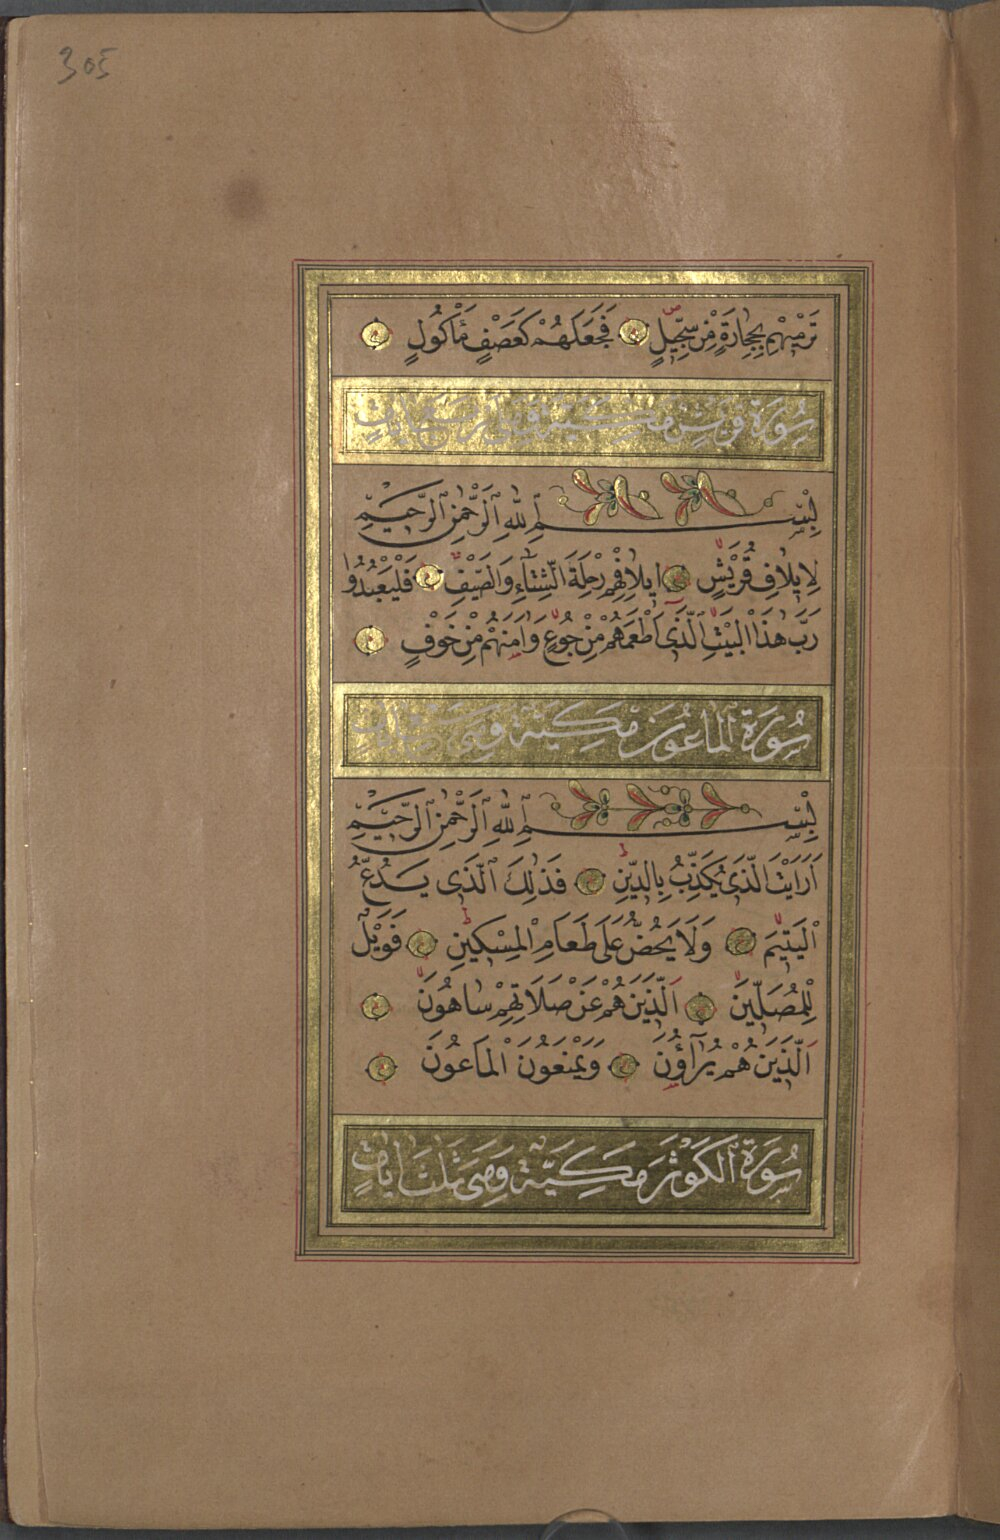 305
تَرْمِيْهِمْ بِحِجَارَةٍ مِنْ سِجِّيلٍ فَجَعَلَهُمْ كَعَصْفٍ مَأْكُولٍ
سُورَةُ قُرَيْشٍ مَكِيَّةٌ وَهِىَ اَرْبَعُ اٰيَاتٍ
بِسْمِ اللّٰهِ الرَّحْمٰنِ الرَّحِيمِ
لِاِيلَافِ قُرَيْشٍ اِيلَافِهِمْ رِحْلَةَ الشِّتَاءِ وَالصَّيْفِ فَلْيَعْبُدُوا
رَبَّ هٰذَا الْبَيْتِ الَّذِى اَطْعَمَهُمْ مِنْ جُوعٍ وَاٰمَنَهُمْ مِنْ خَوْفٍ
سُورَةُ الْمَاعُونَ مَكِيَّةٌ وَهِىَ اٰيَاتٍ
بِسْمِ اللّٰهِ الرَّحْمٰنِ الرَّحِيمِ
اَرَاَيْتَ الَّذِى يُكَذِّبُ بِالدِّينِ فَذٰلِكَ الَّذِى يَدُعُّ
الْيَتِيمَ وَلَا يَحُضُّ عَلٰى طَعَامِ الْمِسْكِينِ فَوَيْلٌ
لِلْمُصَلِّينَ الَّذِينَ هُمْ عَنْ صَلَاتِهِمْ سَاهُونَ
الَّذِينَ هُمْ يُرَآؤُنَ وَيَمْنَعُونَ الْمَاعُونَ
سُورَةُ الْكَوْثَرَ مَكِيَّةٌ وَهِىَ ثَلٰثُ اٰيَاتٍ